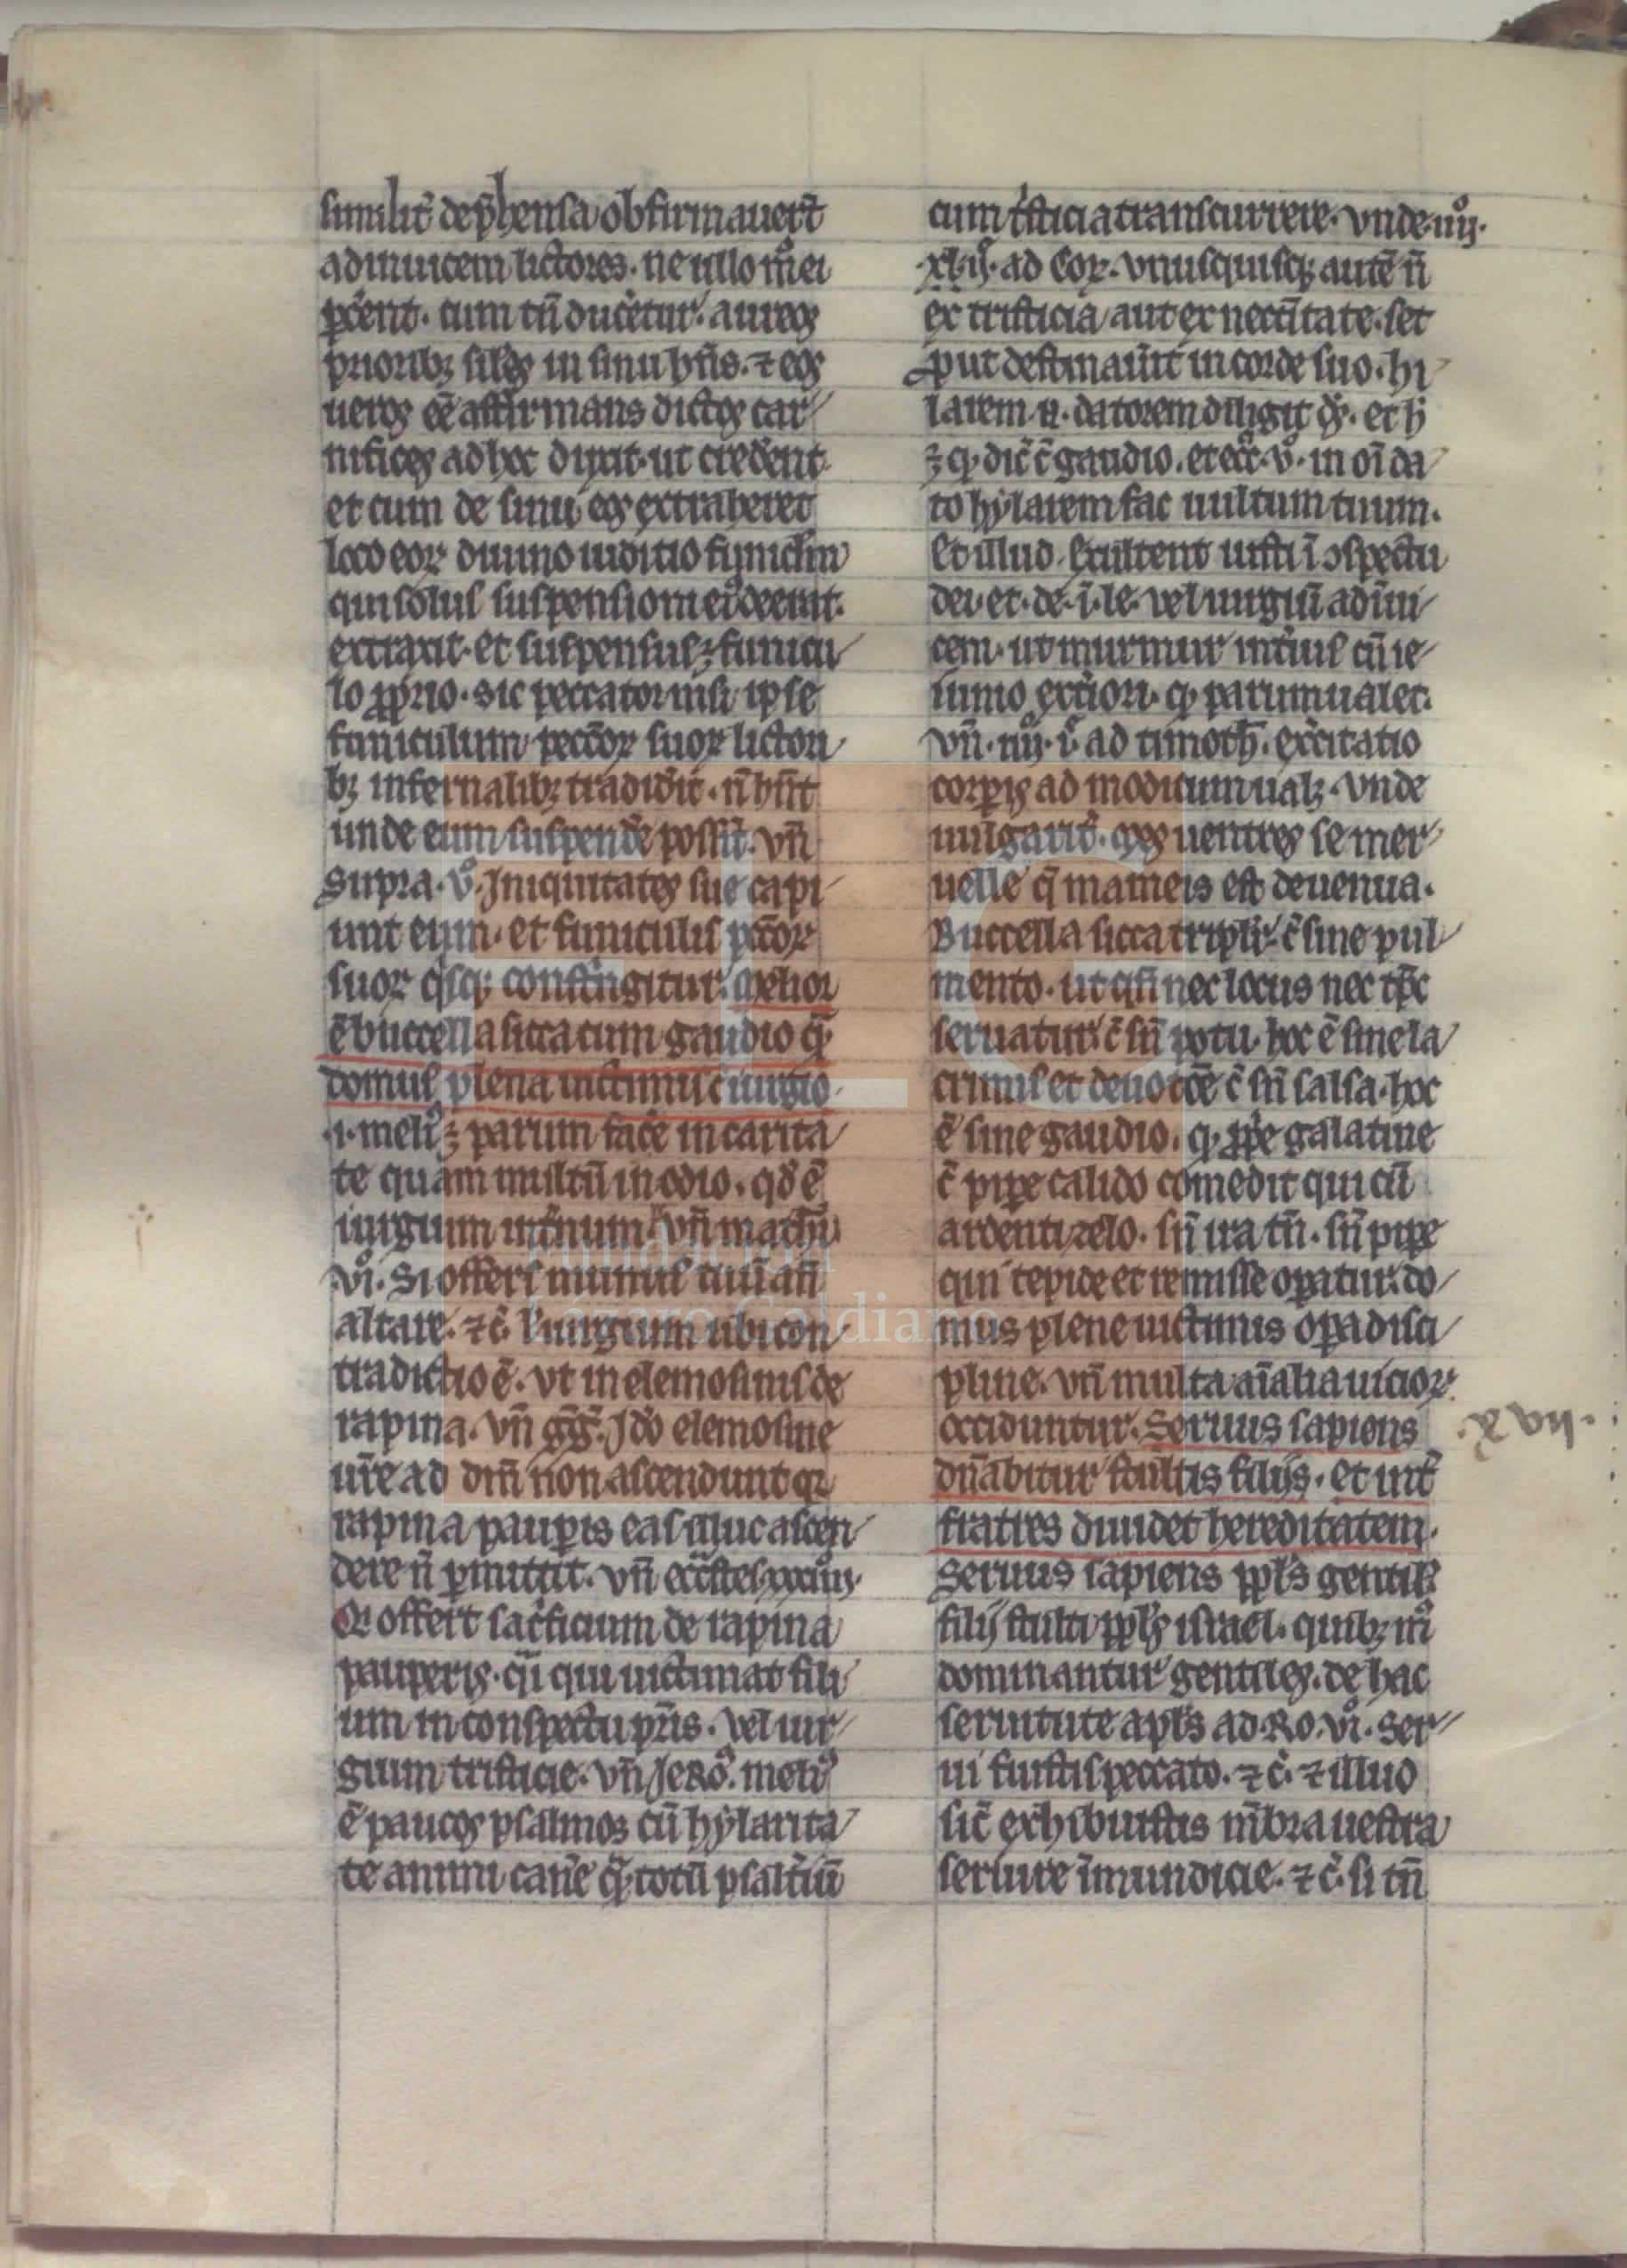 similit̄ dep̄hensa obfirmauer̄t
adinuicem lictores. ne ullo mͦ ei
ꝑcēnt. cum tn̄ ducētur. aureos
priorib; siles in sinu hn̄s. ⁊ eos
ueros eē affirmans dictos car
nifices ad hoc duxit. ut credēnt
et cum de sinu eos extraheret
loco eoꝝ diuino iuditio funiclm̄
qui solus suspensioni ei deerat.
extraxit. et suspensus ē funicu
lo ꝓprio. sic peccator nisi ipse
funiculum pecc̄oꝝ suoꝝ lictori
b; infernalib; tradidit. n̄ hn̄t
unde eum suspendē possn̄t. vn̄
supra. vͦ. Iniquitates sue capi
unt eum. et funiculis pc̄coꝝ
suoꝝ qͥsq; constringitur. Melior
ē buccella sicca cum gaudio qͣ̄
domus plena uictimis c̄ iurgio
.i. meliꝰ ē parum facē in carita
te quam multū in odio. qd̄ ē
iurgium int̄num. vn̄ math̄
vͦi. Si offers munus tuū an̄
altare. ⁊c̄. ł iurgium ubi con
tradictio ē. vt in elemosinis de
rapina. vn̄ gḡ. Iō elemosine
ur̄e ad dm̄ non ascendunt qꝛ
rapina pauꝑis eas illuc ascen
dere n̄ ꝑmittit. vn̄ eccs̄tes xxxiiiͦi.
Qͥ offert sac̄ficium de rapina
pauperis. qͣ̄ qui uictimat fili
um in conspectu pr̄is. vel iur
gium tristicie. vn̄ Ieroͦ. meliꝰ
ē paucos psalmos cū hylarita
te animi canē qͣ̄ totū psalt̄iū
cum tͥsticia transcurrere. vnde iiͦij.
.xl.ij. ad Coꝝ. vnusquisq; autē n̄
ex tristicia aut ex necc̄itate. set
ꝓut destinauit in corde suo. hi
larem .n. datorem diligit ds̄. et h̄
ē qͩ dic̄ c̄ gaudio. et ecc̄. vͦ. in oī da
to hylarem fac uultum tuum.
Et illud. Exultent iusti ī ↄspectu
dei. et. de. i. le. vel iurgiū adīui
cem. ut murmur int̄ius cū ie
iunio ext̄iori. qͩ parum ualet.
vn̄. iiij. iͣ ad timoth̄. exc̄itatio
corꝑis ad modicum ual;. vnde
uulgarit̄. qͥs uentres se mer
uelle qͥ mameis est de uenua.
Buccella sicca tripłr. c̄ sine pul
mento. ut qn̄ nec locus nec tp̄c
seruatur. c̄ sn̄ potu. hoc ē sine la
crimis et deuotōe c̄ sn̄ salsa. hoc
ē sine gaudio. qͩ ꝓpͥe galatine
c̄ pipe calido comedit qui cū
ardenti zelo. sn̄ ira tn̄. sn̄ pipe
qui tepide et remisse oꝑatur. do
mus plene uictimis oꝑa disci
pline. vn̄ multa aīalia uicioꝝ
occiduntur. Seruus sapiens
dn̄abitur stultis filijs. et int̄
fratres diuidet hereditatem.
Seruus sapiens ppl̄s gentil̄
filij stulti ppl̄s israel. quib; mͦ
dominantur gentiles. de hac
seruitute apl̄s ad Ro. vͦi. Ser
ui fuistis peccato. ⁊c̄. ⁊ illud
sic̄ exhibuistis mb̄ra uestra
seruire īmundicie. ⁊c̄. si tn̄
FLG
Fundación
Lázaro Galdiano